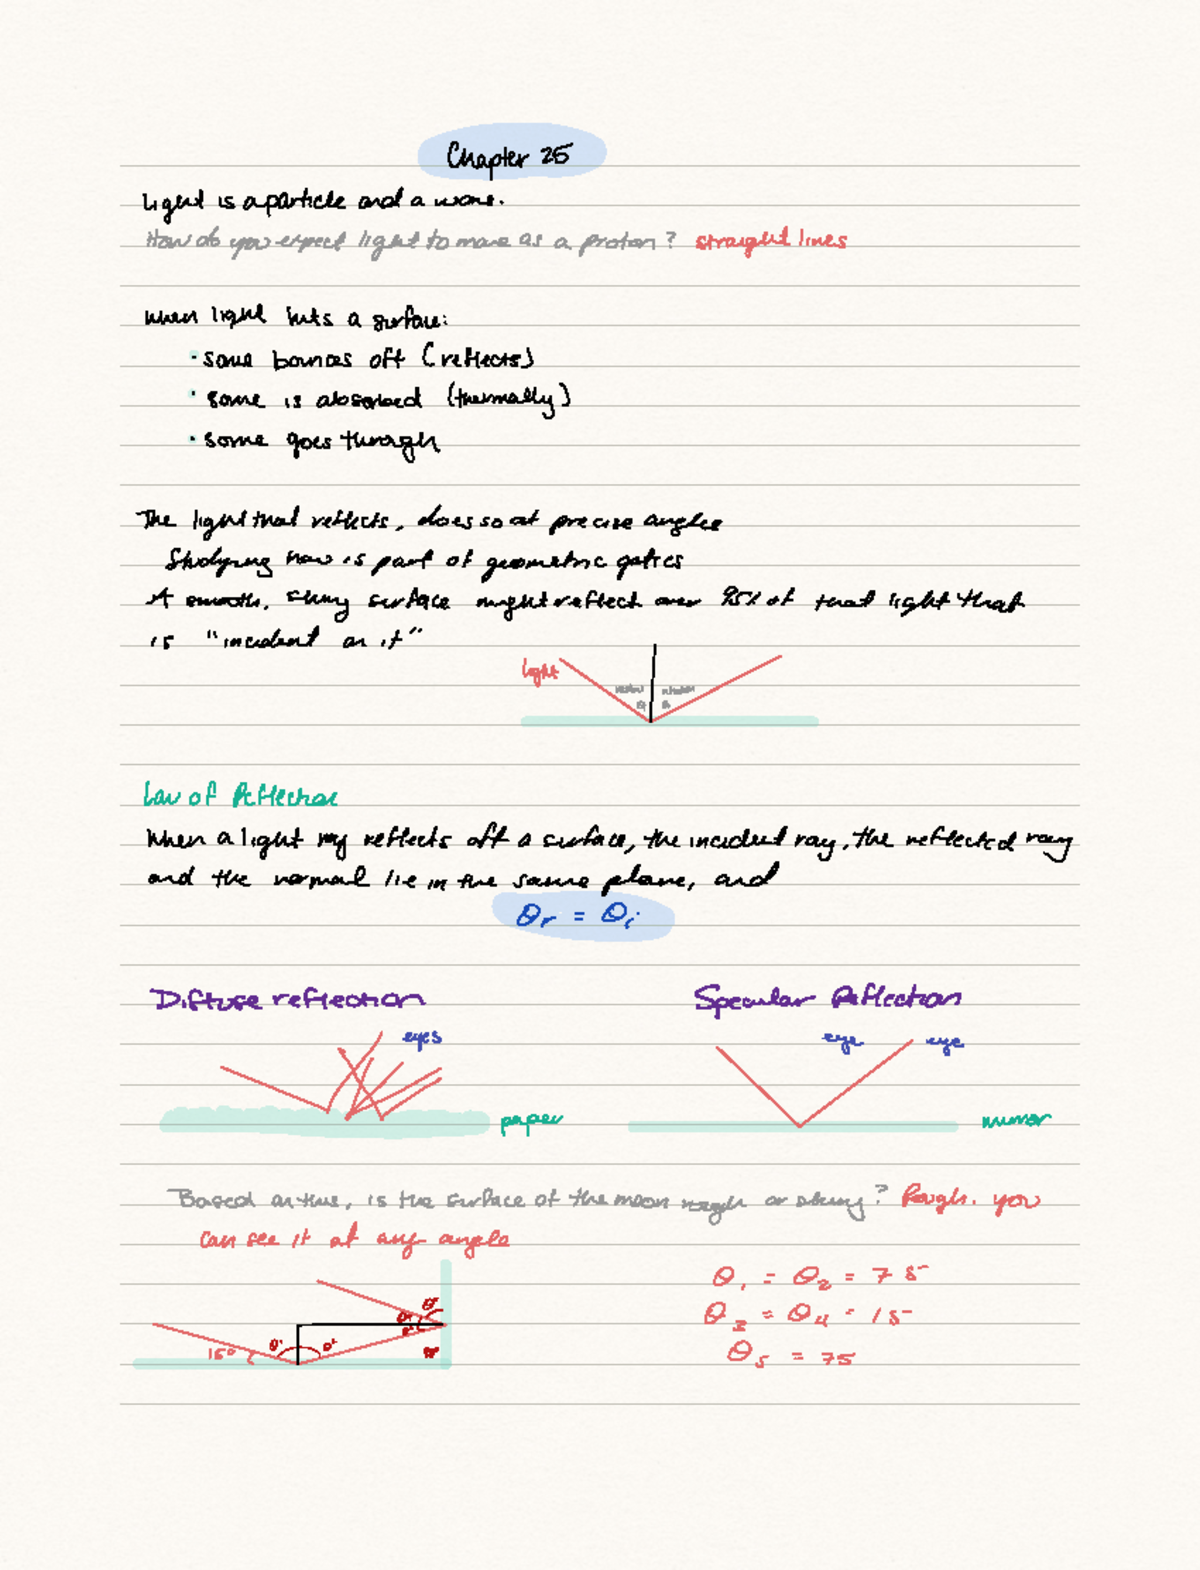 Chapter 25
Light is a particle and a wave.
How do you expect light to move as a proton? straight lines
When light hits a surface:
• some bounces off (reflects)
• some is absorbed (thermally)
• some goes through
The light that reflects, does so at precise angles
Studying how is part of geometric optics
A smooth, shiny surface might reflect over 95% of that light that
is "incident on it"
light
θ θ
Law of Reflection
When a light ray reflects off a surface, the incident ray, the reflected ray
and the normal lie in the same plane, and
θr = θi
Diffuse reflection Specular Reflection
eyes eye eye
paper mirror
Based on this, is the surface of the moon rough or shiny? Rough. you
can see it at any angle
θ1 = θ2 = 75
θ3 = θ4 = 15
15° θ1 θ2
θ5 = 75